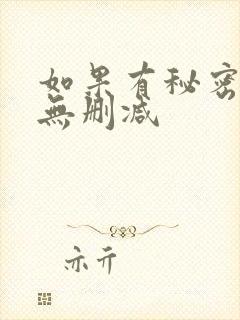 如果有秘密
無删减
亦亓